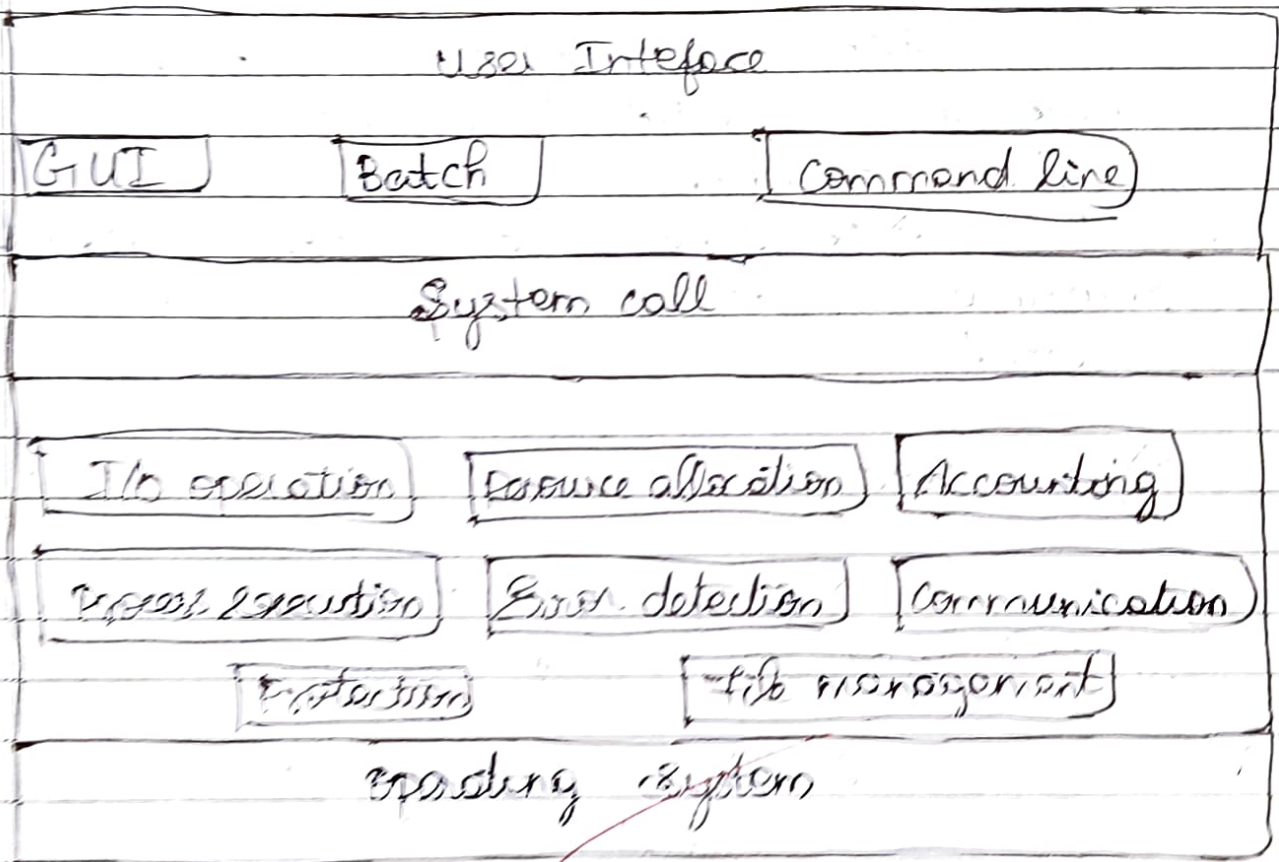 User Inteface
GUI Batch Command line
System call
I/O operation Resource allocation Accounting
Execution Error detection Communication
Protection file management
Operating system